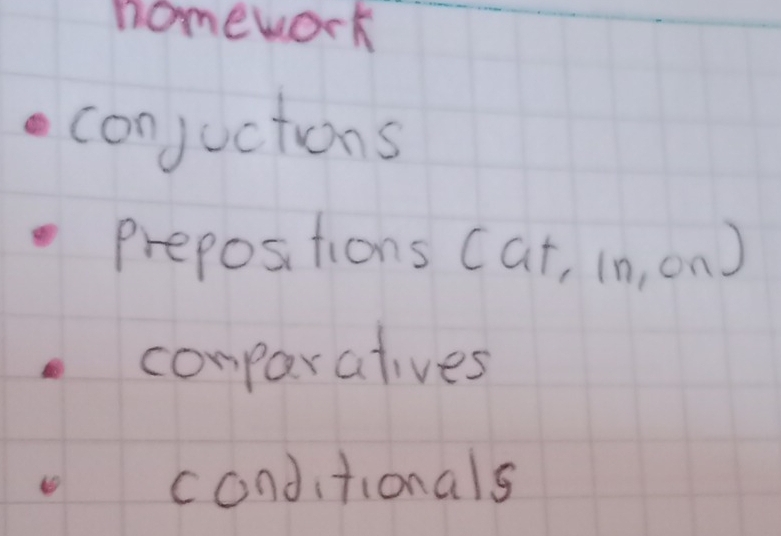 homework
• conjuctions
• prepositions (at, in, on)
• comparatives
• conditionals